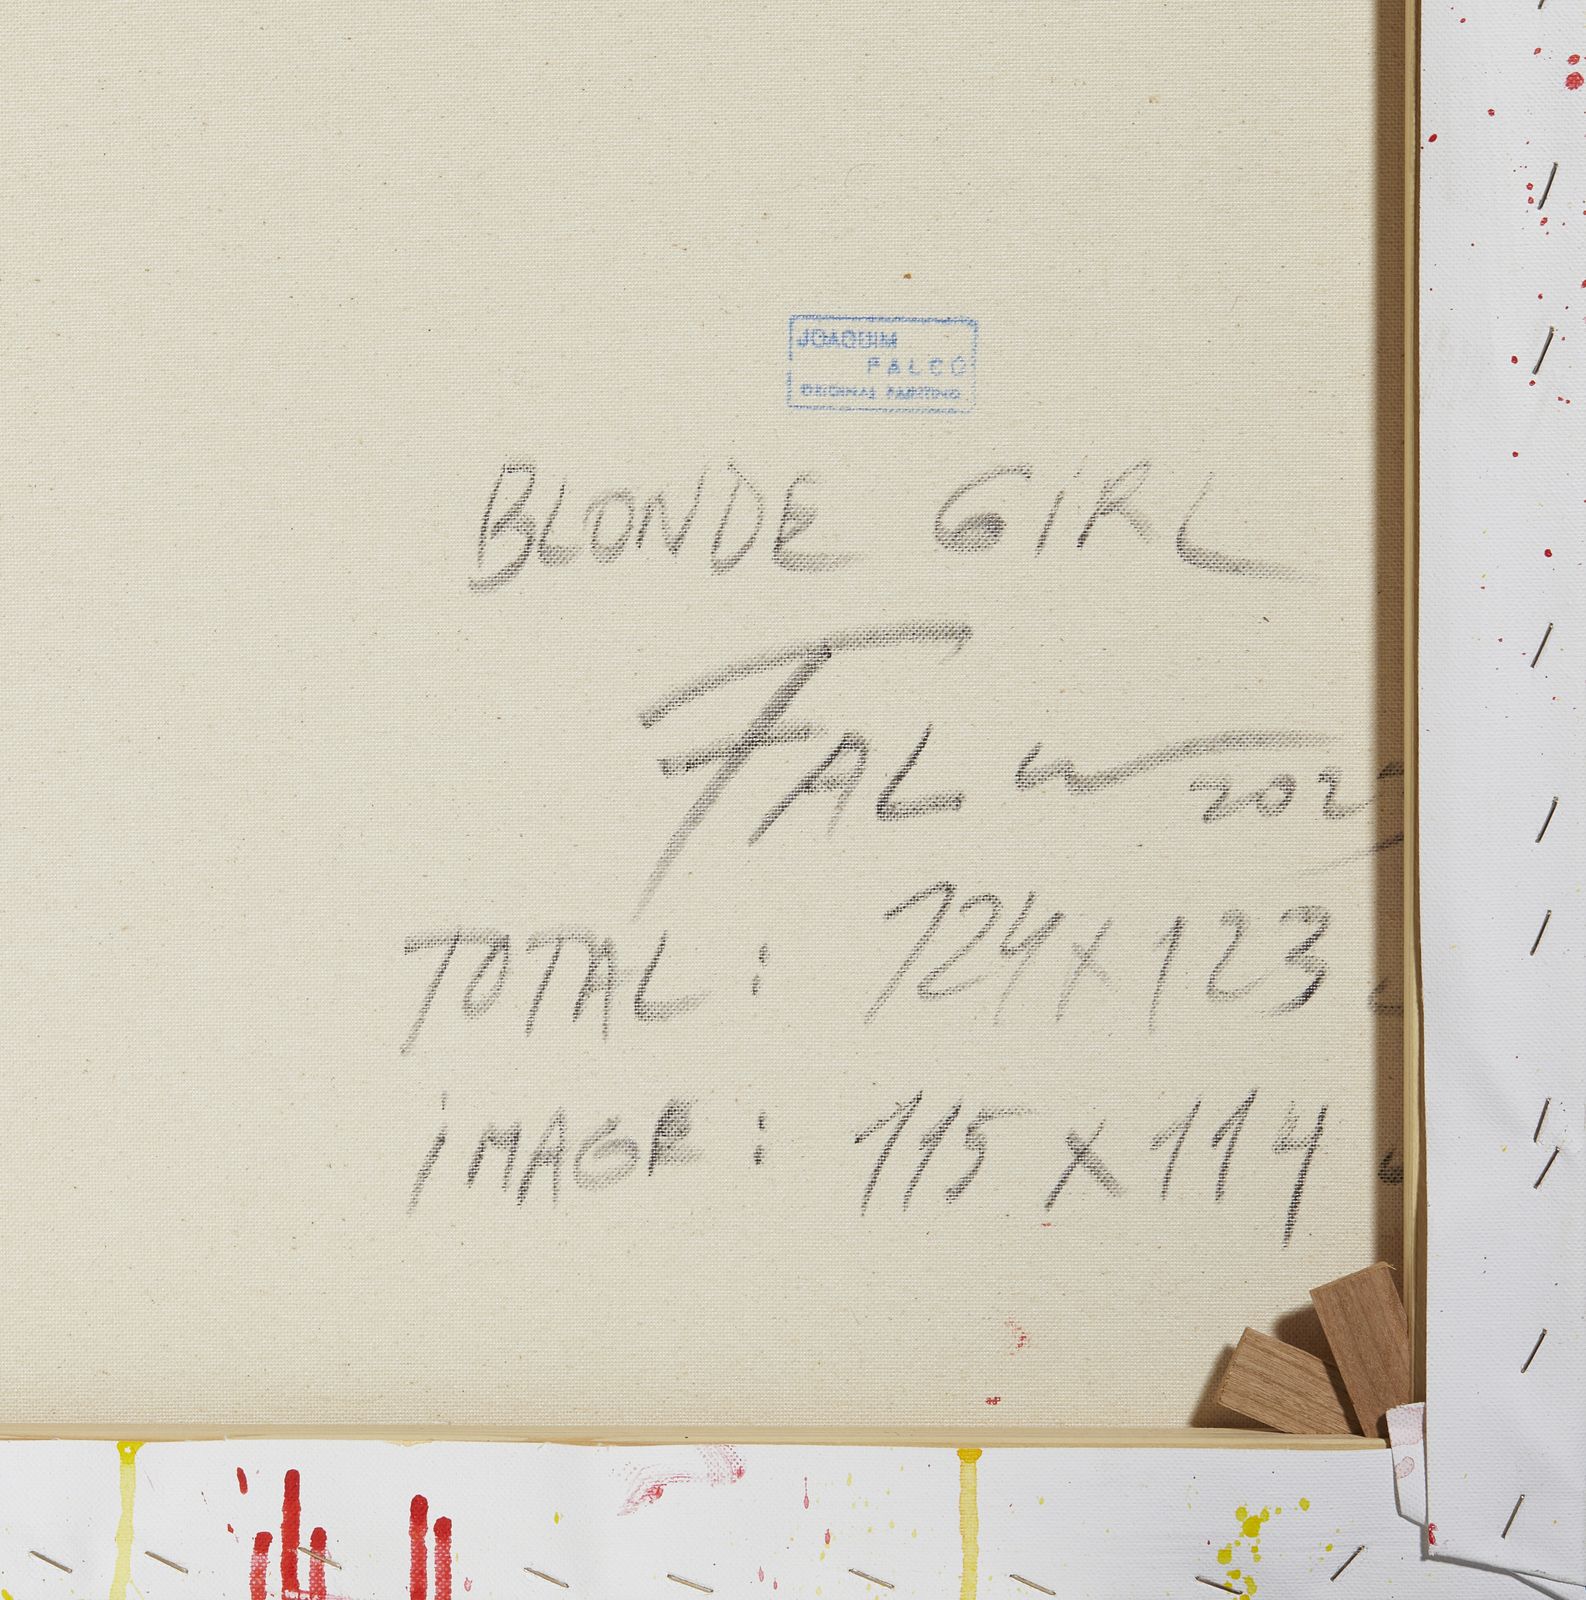 JOAQUIM
FALCÓ
ORIGINAL PAINTING
BLONDE GIRL
FALCO
TOTAL: 124x123
iMAGE: 115x114